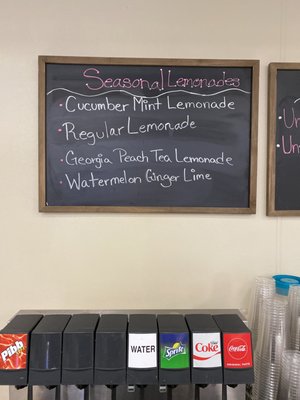 Seasonal Lemonades
Cucumber Mint Lemonade
Regular Lemonade
Georgia Peach Tea Lemonade
Watermelon Ginger Lime
Un
Un
Pibb
WATER
Sprite
Diet
Coke
Coca-Cola